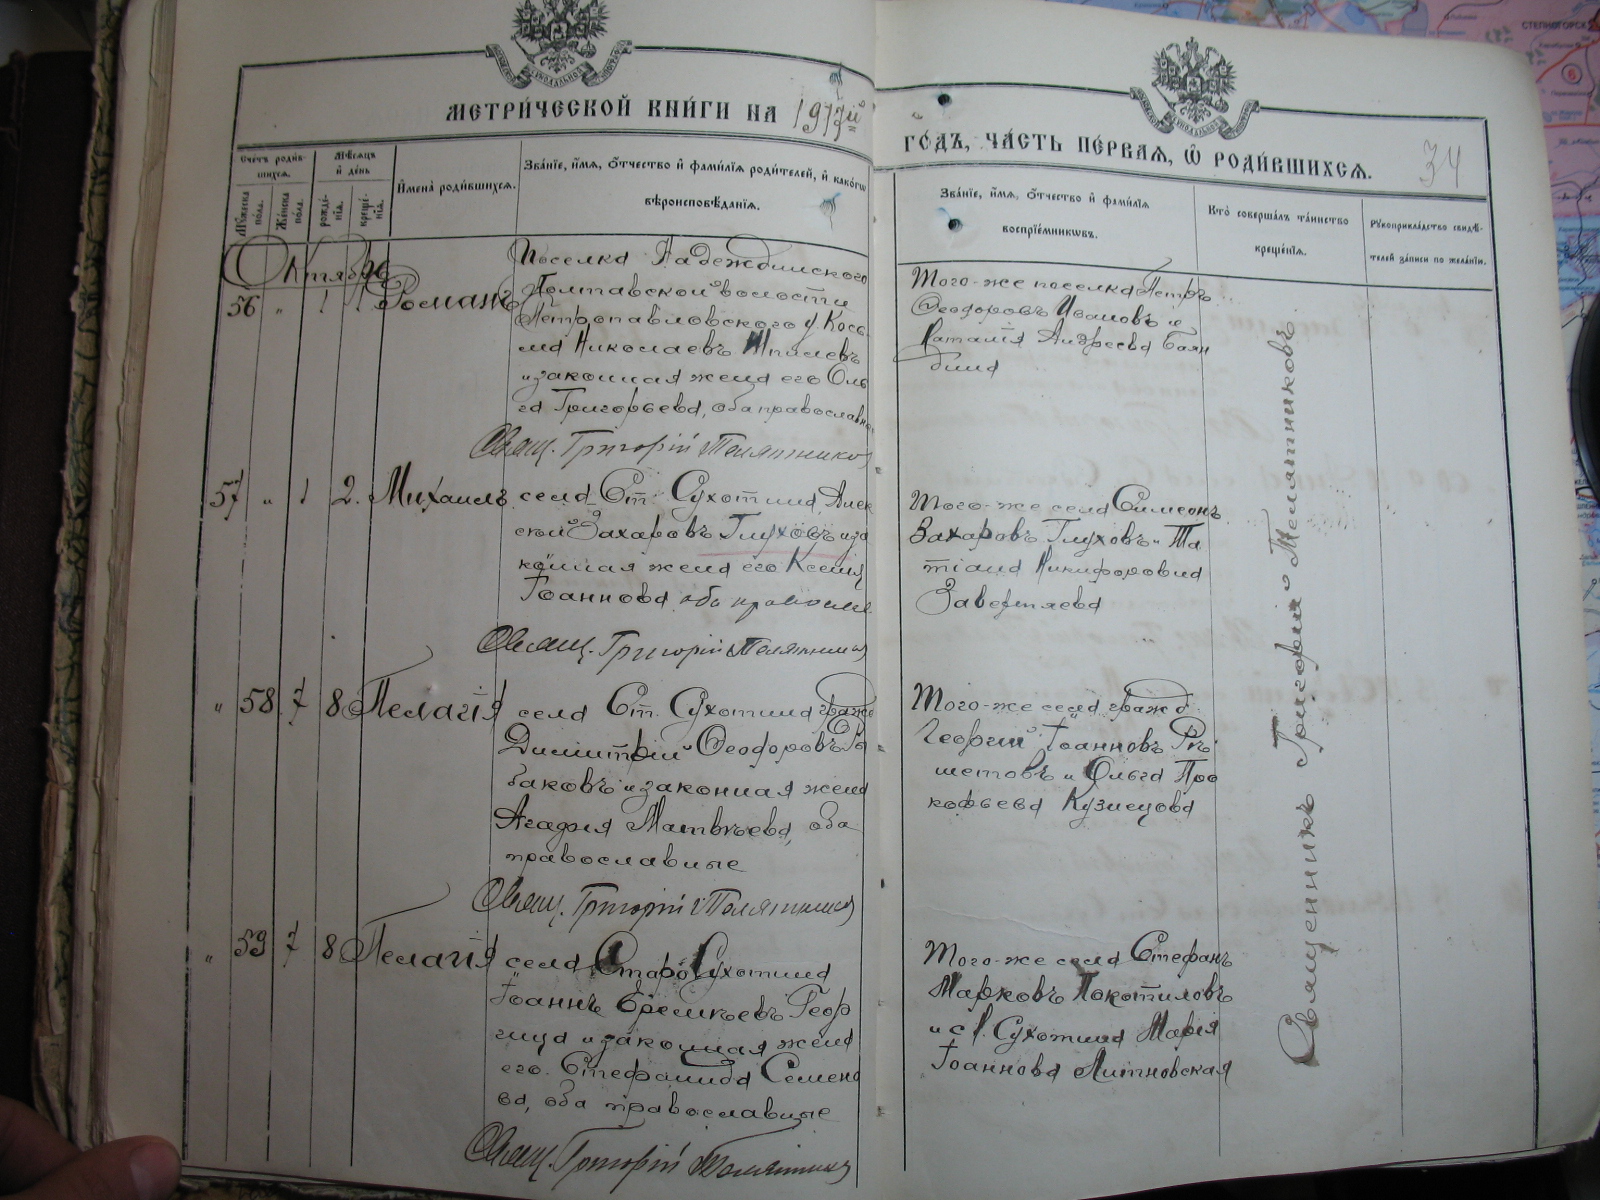 МЕТРИ́ЧЕСКОЙ КНИ́ГИ НА 1917й
ГО́ДЪ, ЧА́СТЬ ПЕ́РВАЯ, Ѿ РОДИ́ВШИХСЯ.
34
Сче́тъ роди́в-
шихся.
Му́жеска по́ла.
Же́нска по́ла.
Мѣ́сяцъ и де́нь
рожде́-
нїя.
креще́-
нїя.
Имена̀ роди́вшихся.
Зва́нїе, и́мя, о́тчество и фами́лїя роди́телей, и како́гѡ
вѣроисповѣ́данїя.
Зва́нїе, и́мя, о́тчество и фами́лїя
воспрїе́мникѡвъ.
Кто̀ соверша́лъ та́инство
креще́нїя.
Рукоприкла́дство свидѣ́-
телей за́писи по жела́нїю.
Октябрь
56 " 1 1 Романъ
Поселка Надеждинского
Полтавской волости
Петропавловского у. Кось
ма Николаевъ Шпилевъ
и законная жена его Оль
га Григорьева, оба православн
Свящ. Григорій Телятников
Того-же поселка Петръ
Ѳеодоровъ Ивановъ и
Наталія Андреева Баян
дина
57 " 1 2. Михаилъ
села Ст. Сухотина Алек
сѣй Захаровъ Глуховъ и за
конная жена его Ксенія
Іоаннова, оба православ
Свящ. Григорій Телятников
Того-же села Симеонъ
Захаровъ Глуховъ и Та
тіана Никифоровна
Заверняева
" 58 7 8 Пелагія
села Ст. Сухотина гражд
Димитрій Ѳеодоровъ Ры
баковъ и законная жена
Агафія Матвѣева, оба
православные
Свящ. Григорій Телятников
Того-же села гражд.
Георгій Іоанновъ Рѣ
шетовъ и Ольга Про
кофьева Кузнецова
" 59 7 8 Пелагія
села Старо Сухотина
Іоаннъ Еремѣевъ Геор
гица и законная жена
его Стефанида Семено
ва, оба православные
Свящ. Григорій Телятников
Того-же села Стефанъ
Марковъ Покотиловъ
и с. Сухотина Марія
Іоаннова Литновская
Священникъ Григорій Телятниковъ
СТЕПНОГОРСК